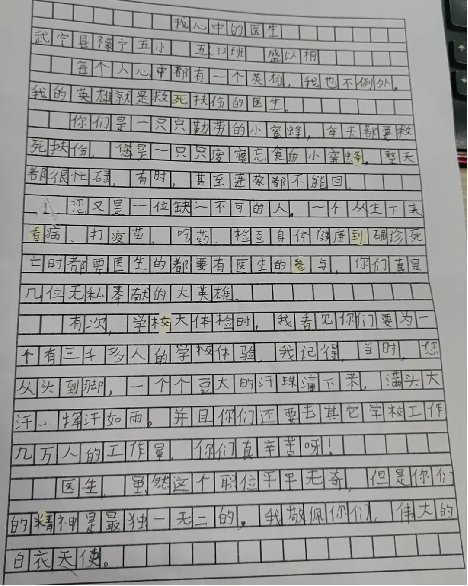 我心中的医生
武宁县宁五小 五(2)班 盛以楠
每个人心中都有一个英雄，我也不例外。
我的英雄就是救死扶伤的医生。
你们是一只只勤劳的小蜜蜂，每天都要救
死扶伤，您是一只只废寝忘食的小蜜蜂，整天
都很忙碌，有时，甚至连家都不能回。
您又是一位缺一不可的人。一个人从生下来
看病、打疫苗、吃药、检查身体健康到确诊死
亡的都要医生的都要有医生的参与，你们真是
几位无私奉献的大英雄。
有次，学校大体检时，我看见你们要为一
个有三千多人的学校体验，我记得，当时，您
从头到脚，一个个豆大的汗珠滴下来，满头大
汗、挥汗如雨。并且你们还要去其它学校工作
几万人的工作量，你们真辛苦呀！
医生，虽然这个职位平平无奇，但是你们
的精神是最独一无二的。我敬佩你们，伟大的
白衣天使。